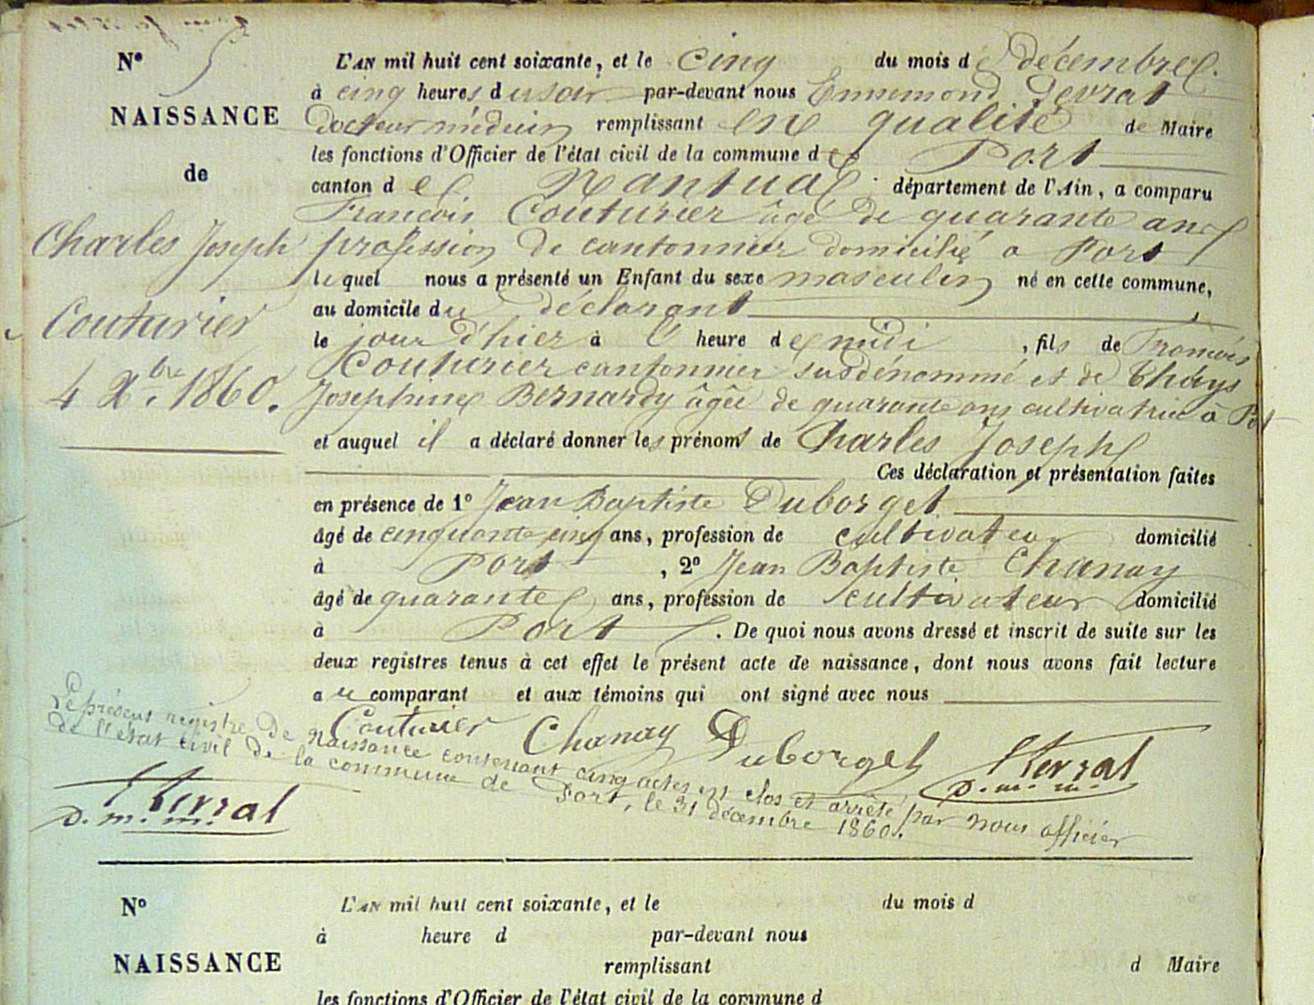 N° 5
NAISSANCE
de
Charles Joseph
Couturier
4 Xbre 1860.
L'AN mil huit cent soixante, et le cinq du mois de décembre
à cinq heures du soir par-devant nous Ennemond
Docteur médecin remplissant en qualité de Maire
les fonctions d'Officier de l'état civil de la commune de Port
canton de Nantua département de l'Ain, a comparu
François Couturier âgé de quarante ans
profession de cantonnier domicilié a Port
lequel nous a présenté un Enfant du sexe masculin né en cette commune,
au domicile du déclarant
le jour d'hier à heure de midi, fils de François
Couturier cantonnier susdénommé et de Thays
Josephine Bernardy âgée de quarante ans cultivatrice a Port
et auquel il a déclaré donner les prénoms de Charles Joseph
Ces déclaration et présentation faites
en présence de 1° Jean Baptiste Duborget
âgé de cinquante cinq ans, profession de cultivateur domicilié
à Port, 2° Jean Baptiste Chanay
âgé de quarante ans, profession de cultivateur domicilié
à Port. De quoi nous avons dressé et inscrit de suite sur les
deux registres tenus à cet effet le présent acte de naissance, dont nous avons fait lecture
au comparant et aux témoins qui ont signé avec nous
Couturier Chanay Duborget
d. m. m.
Le présent registre de naissance contenant cinq actes est clos et arrêté par nous officier
de l'état civil de la commune de Port, le 31 décembre 1860.
d. m. m.
N°
NAISSANCE
L'AN mil huit cent soixante, et le du mois d
à heure d par-devant nous
remplissant d Maire
les fonctions d'Officier de l'état civil de la commune d